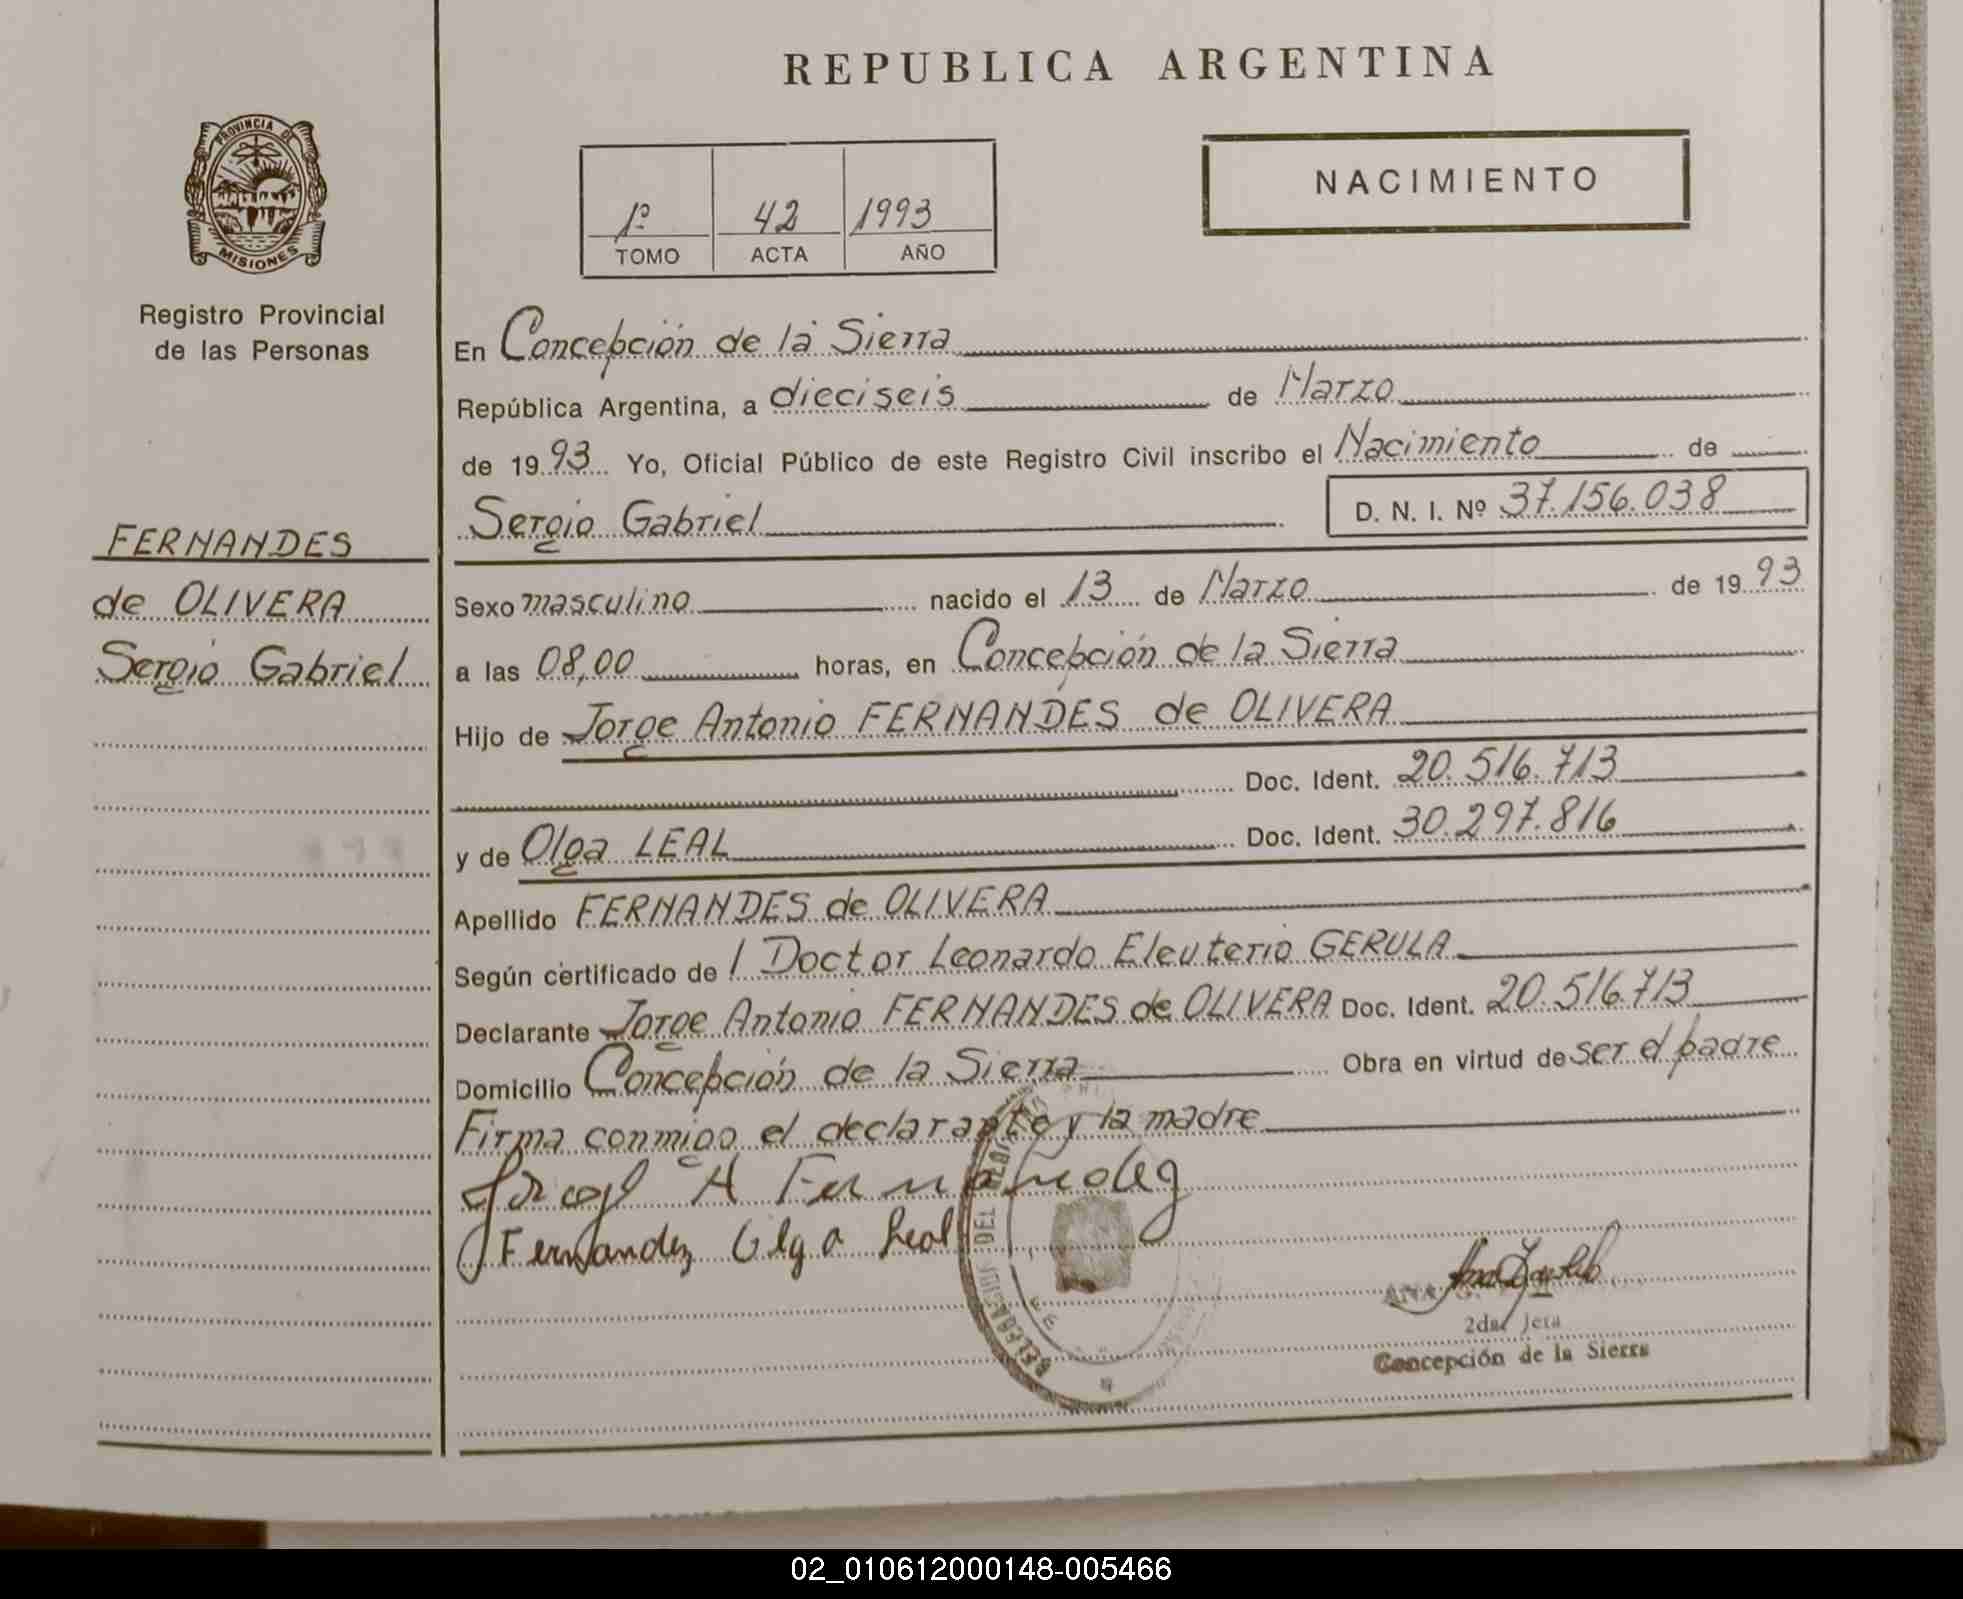 REPUBLICA ARGENTINA
PROVINCIA D
MISIONES
Registro Provincial
de las Personas
1º 42 1993
TOMO ACTA AÑO
NACIMIENTO
En Concepción de la Sierra
República Argentina, a dieciseis de Marzo
de 1993 Yo, Oficial Público de este Registro Civil inscribo el Nacimiento de
Sergio Gabriel D. N. I. Nº 37.156.038
FERNANDES
de OLIVERA
Sergio Gabriel
Sexo masculino nacido el 13 de Marzo de 1993
a las 08,00 horas, en Concepción de la Sierra
Hijo de Jorge Antonio FERNANDES de OLIVERA
Doc. Ident. 20.516.713
y de Olga LEAL Doc. Ident. 30.297.816
Apellido FERNANDES de OLIVERA
Según certificado de l Doctor Leonardo Eleuterio GERULA
Declarante Jorge Antonio FERNANDES de OLIVERA Doc. Ident. 20.516.713
Domicilio Concepción de la Sierra Obra en virtud de ser el padre
Firma conmigo el declarante y la madre
A
Fernandez Olga Leal
DEL
ANA
2da Jefa
Concepción de la Sierra
02_010612000148-005466